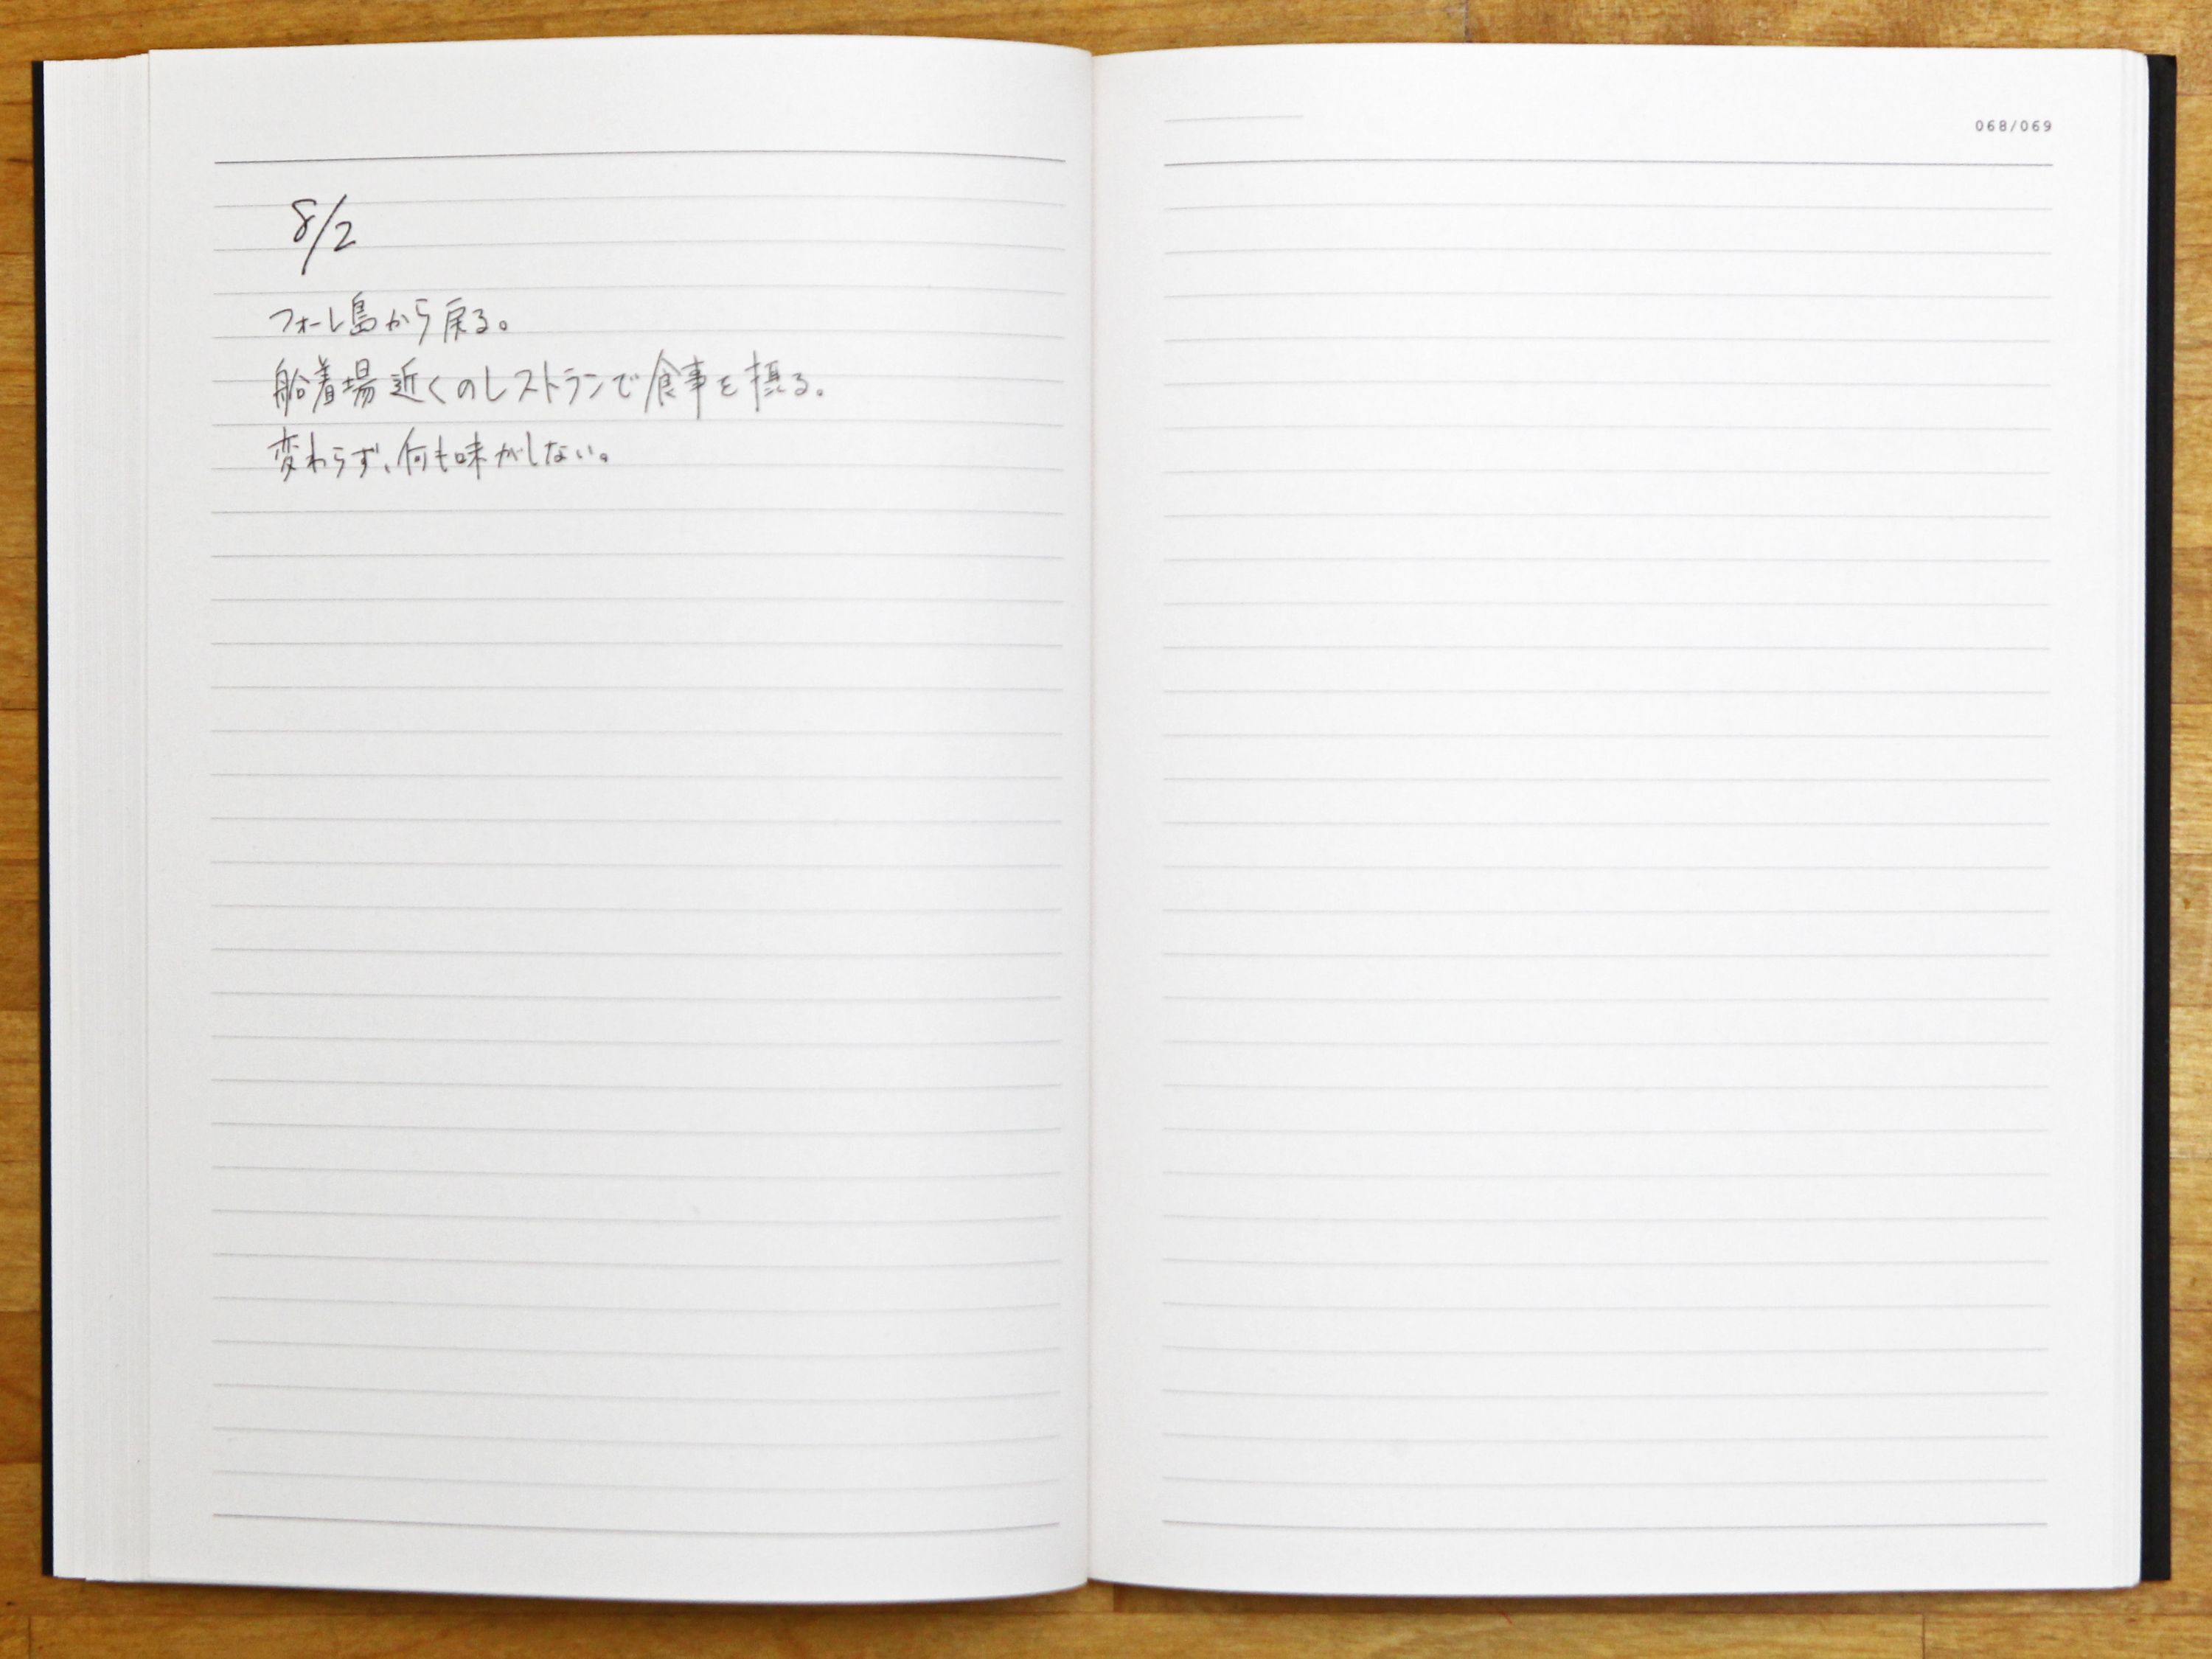 8/2
フォーレ島から戻る。
船着場近くのレストランで食事を摂る。
変わらず、何も味がしない。
068/069